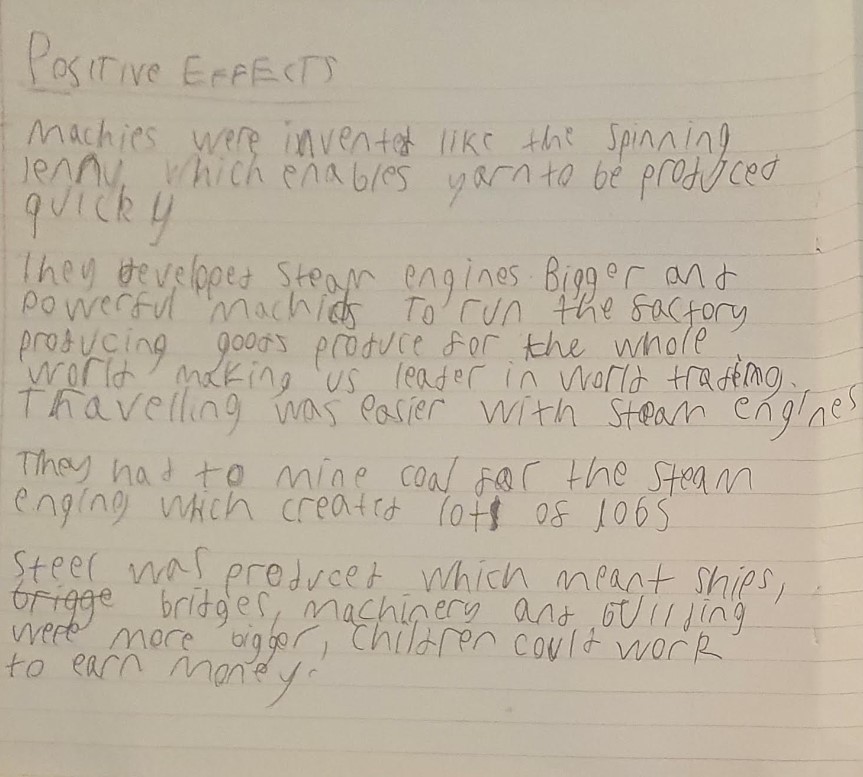 Positive Effects
Machies were invented like the spinning
jenny, which enables yarn to be produced
quicky
They developed steam engines. Bigger and
powerful machids To run the factory
producing goods produce for the whole
world making us leader in world trading.
Travelling was easier with steam engines
They had to mine coal for the steam
enging which created lots of jobs
Steel was produced which meant ships,
brigge bridges, machinery and building
were more bigger, Children could work
to earn money.